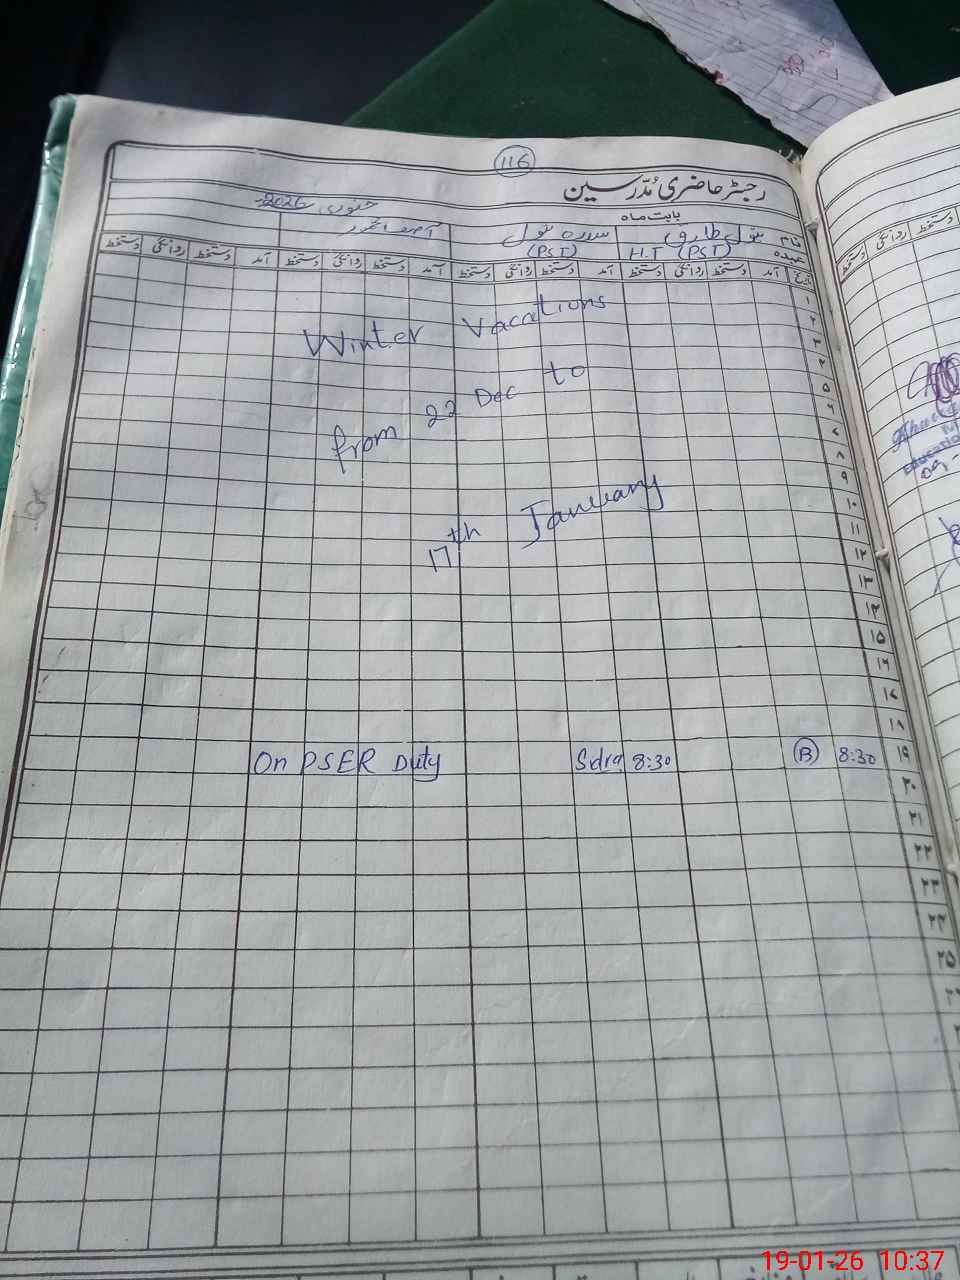 116
رجسٹر حاضری مُدّرسین
بابت ماہ
جنوری 2026
نام بتول طارق سدرہ بتول آصف محمود
عہدہ H.T (PST) (PST)
تاریخ آمد دستخط روانگی دستخط آمد دستخط روانگی دستخط آمد دستخط روانگی دستخط آمد دستخط روانگی دستخط
دستخط روانگی دستخط
۱
۲
۳
۴
۵
۶
۷
۸
۹
۱۰
۱۱
۱۲
۱۳
۱۴
۱۵
۱۶
۱۷
۱۸
Winter Vacations
from 22 Dec to
17th January
۱۹ 8:30 B 8:30 Sdra On PSER Duty
۲۰
۲۱
۲۲
۲۳
۲۴
۲۵
19-01-26 10:37